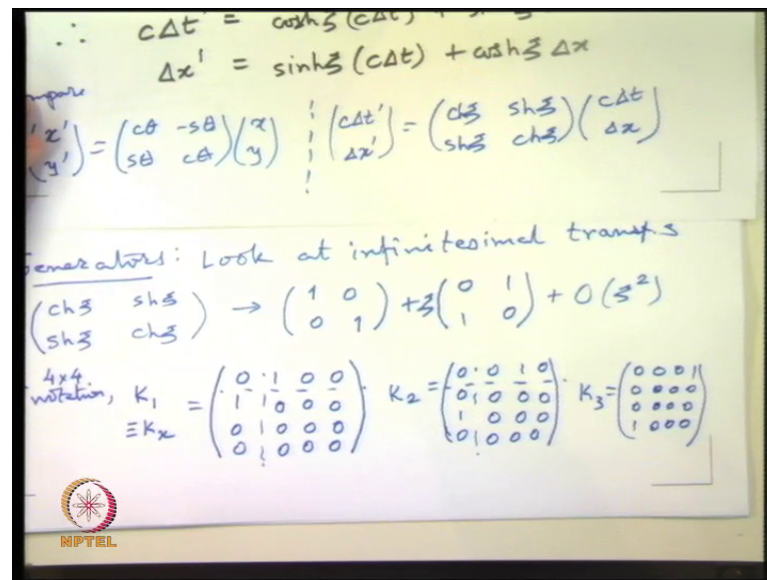 ∴ cΔt' = coshξ (cΔt) +
Δx' = sinhξ (cΔt) + coshξ Δx
mpare
(x' y') = (cθ -sθ sθ cθ)(x y) (cΔt' Δx') = (chξ shξ shξ chξ)(cΔt Δx)
Generators: Look at infinitesimal transf.s
(chξ shξ shξ chξ) → (1 0 0 1) + ξ(0 1 1 0) + O(ξ²)
4x4
notation, K₁ = (0 1 0 0 1 0 0 0 0 0 0 0 0 0 0 0) K₂ = (0 0 1 0 0 0 0 0 1 0 0 0 0 0 0 0) K₃ = (0 0 0 1 0 0 0 0 0 0 0 0 1 0 0 0)
≡Kx
NPTEL